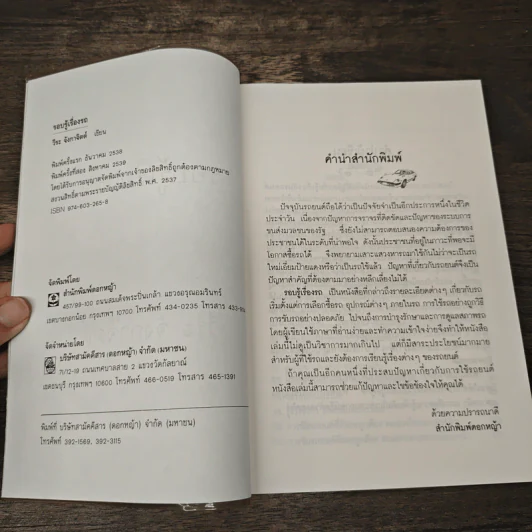 รอบรู้เรื่องรถ
วีระ จังกาจิตต์ เขียน
พิมพ์ครั้งแรก ธันวาคม 2538
พิมพ์ครั้งที่สอง สิงหาคม 2539
โดยได้รับการอนุญาตจัดพิมพ์จากเจ้าของลิขสิทธิ์ถูกต้องตามกฎหมาย
สงวนสิทธิ์ตามพระราชบัญญัติลิขสิทธิ์ พ.ศ. 2537
ISBN 974-603-265-8
จัดพิมพ์โดย
สำนักพิมพ์ดอกหญ้า
457/99-100 ถนนสมเด็จพระปิ่นเกล้า แขวงอรุณอมรินทร์
เขตบางกอกน้อย กรุงเทพฯ 10700 โทรศัพท์ 434-0235 โทรสาร
จัดจำหน่ายโดย
บริษัทสามัคคีสาร (ดอกหญ้า) จำกัด (มหาชน)
71/12-19 ถนนเทศบาลสาย 2 แขวงวัดกัลยาณ์
เขตธนบุรี กรุงเทพฯ 10600 โทรศัพท์ 466-0519 โทรสาร 465-1291
พิมพ์ที่ บริษัทสามัคคีสาร (ดอกหญ้า) จำกัด (มหาชน)
โทรศัพท์ 392-1569, 392-305
คำนำสำนักพิมพ์
ปัจจุบันรถยนต์ถือได้ว่าเป็นปัจจัยจำเป็นอีกประการหนึ่งในชีวิต
ประจำวัน เนื่องจากปัญหาการจราจรที่ติดขัดและปัญหาของระบบการ
ขนส่งมวลชนของรัฐ ซึ่งยังไม่สามารถตอบสนองความต้องการของ
ประชาชนได้ในระดับที่น่าพอใจ ดังนั้นประชาชนที่อยู่ในภาวะที่พอจะมี
โอกาสซื้อรถได้ จึงพยายามเสาะแสวงหารถมาใช้กันไม่ว่าจะเป็นรถ
ใหม่เอี่ยมป้ายแดงหรือว่าเป็นรถใช้แล้ว ปัญหาที่เกี่ยวกับรถยนต์จึงเป็น
ปัญหาสำคัญที่ต้องตามมาอย่างหลีกเลี่ยงไม่ได้
รอบรู้เรื่องรถ เป็นหนังสือที่กล่าวถึงรายละเอียดต่างๆ เกี่ยวกับรถ
เริ่มตั้งแต่การเลือกซื้อรถ อุปกรณ์ต่างๆ ภายในรถ การใช้รถอย่างถูกวิธี
การขับรถอย่างปลอดภัย ไปจนถึงการบำรุงรักษาและการดูแลสภาพรถ
โดยผู้เขียนใช้ภาษาที่อ่านง่ายและทำความเข้าใจง่ายจึงทำให้หนังสือ
เล่มนี้ไม่ดูเป็นวิชาการมากเกินไป แต่ก็มีสาระประโยชน์มากมาย
สำหรับผู้ที่ใช้รถและยังต้องการเรียนรู้เรื่องต่างๆ ของรถยนต์
ถ้าคุณเป็นอีกคนหนึ่งที่ประสบปัญหาเกี่ยวกับการใช้รถยนต์
หนังสือเล่มนี้สามารถช่วยแก้ปัญหาและไขข้อข้องใจให้คุณได้
ด้วยความปรารถนาดี
สำนักพิมพ์ดอกหญ้า